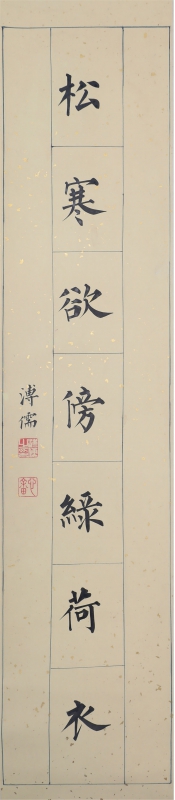 松寒欲傍綠荷衣
溥儒